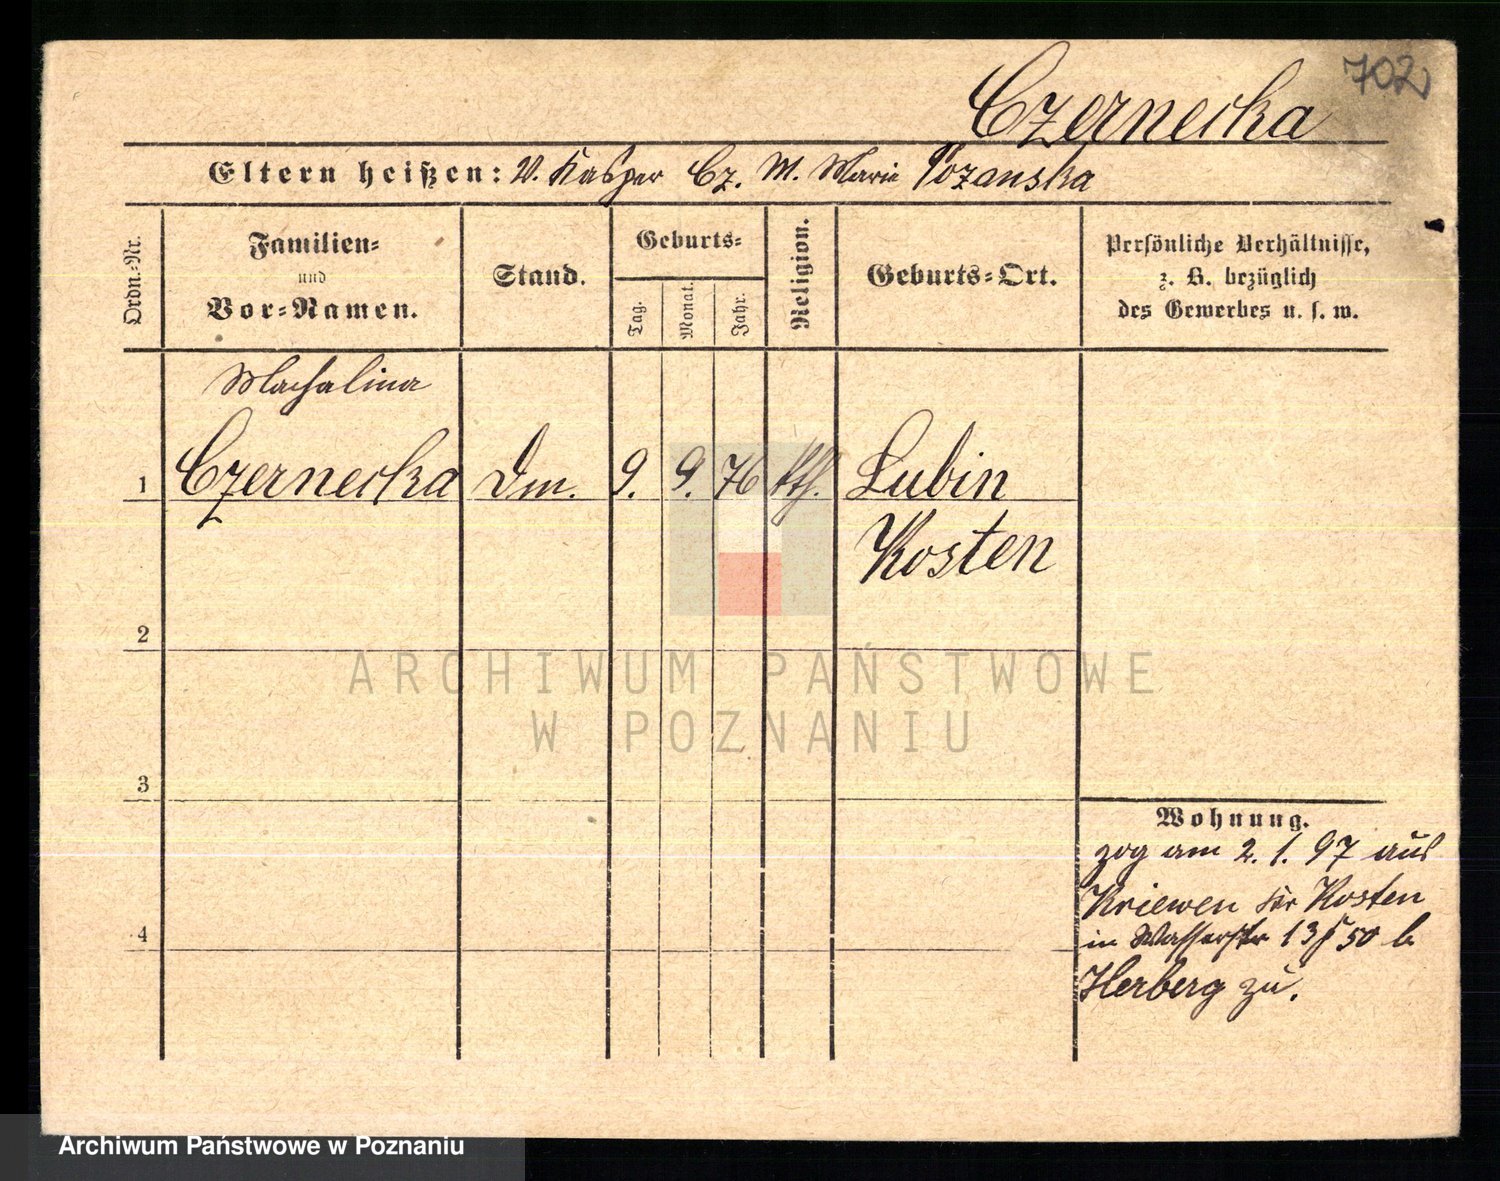 702
Czernecka
Eltern heißen: V. Kasper Cz. M. Marie Pozanska
Ordn.=Nr.
Familien=
und
Vor=Namen.
Stand.
Geburts=
Tag.
Monat.
Jahr.
Religion.
Geburts=Ort.
Persönliche Verhältnisse,
z. B. bezüglich
des Gewerbes u. s. w.
1
Czernecka
Dm. 9. 9. 76 kth. Lubin
Kosten
2
3
4
Wohnung.
zog am 2. 1. 97 aus
Kriewen Kr Kosten
in Wasserstr 13 50 b
Herberg zu.
ARCHIWUM PAŃSTWOWE
W POZNANIU
Archiwum Państwowe w Poznaniu